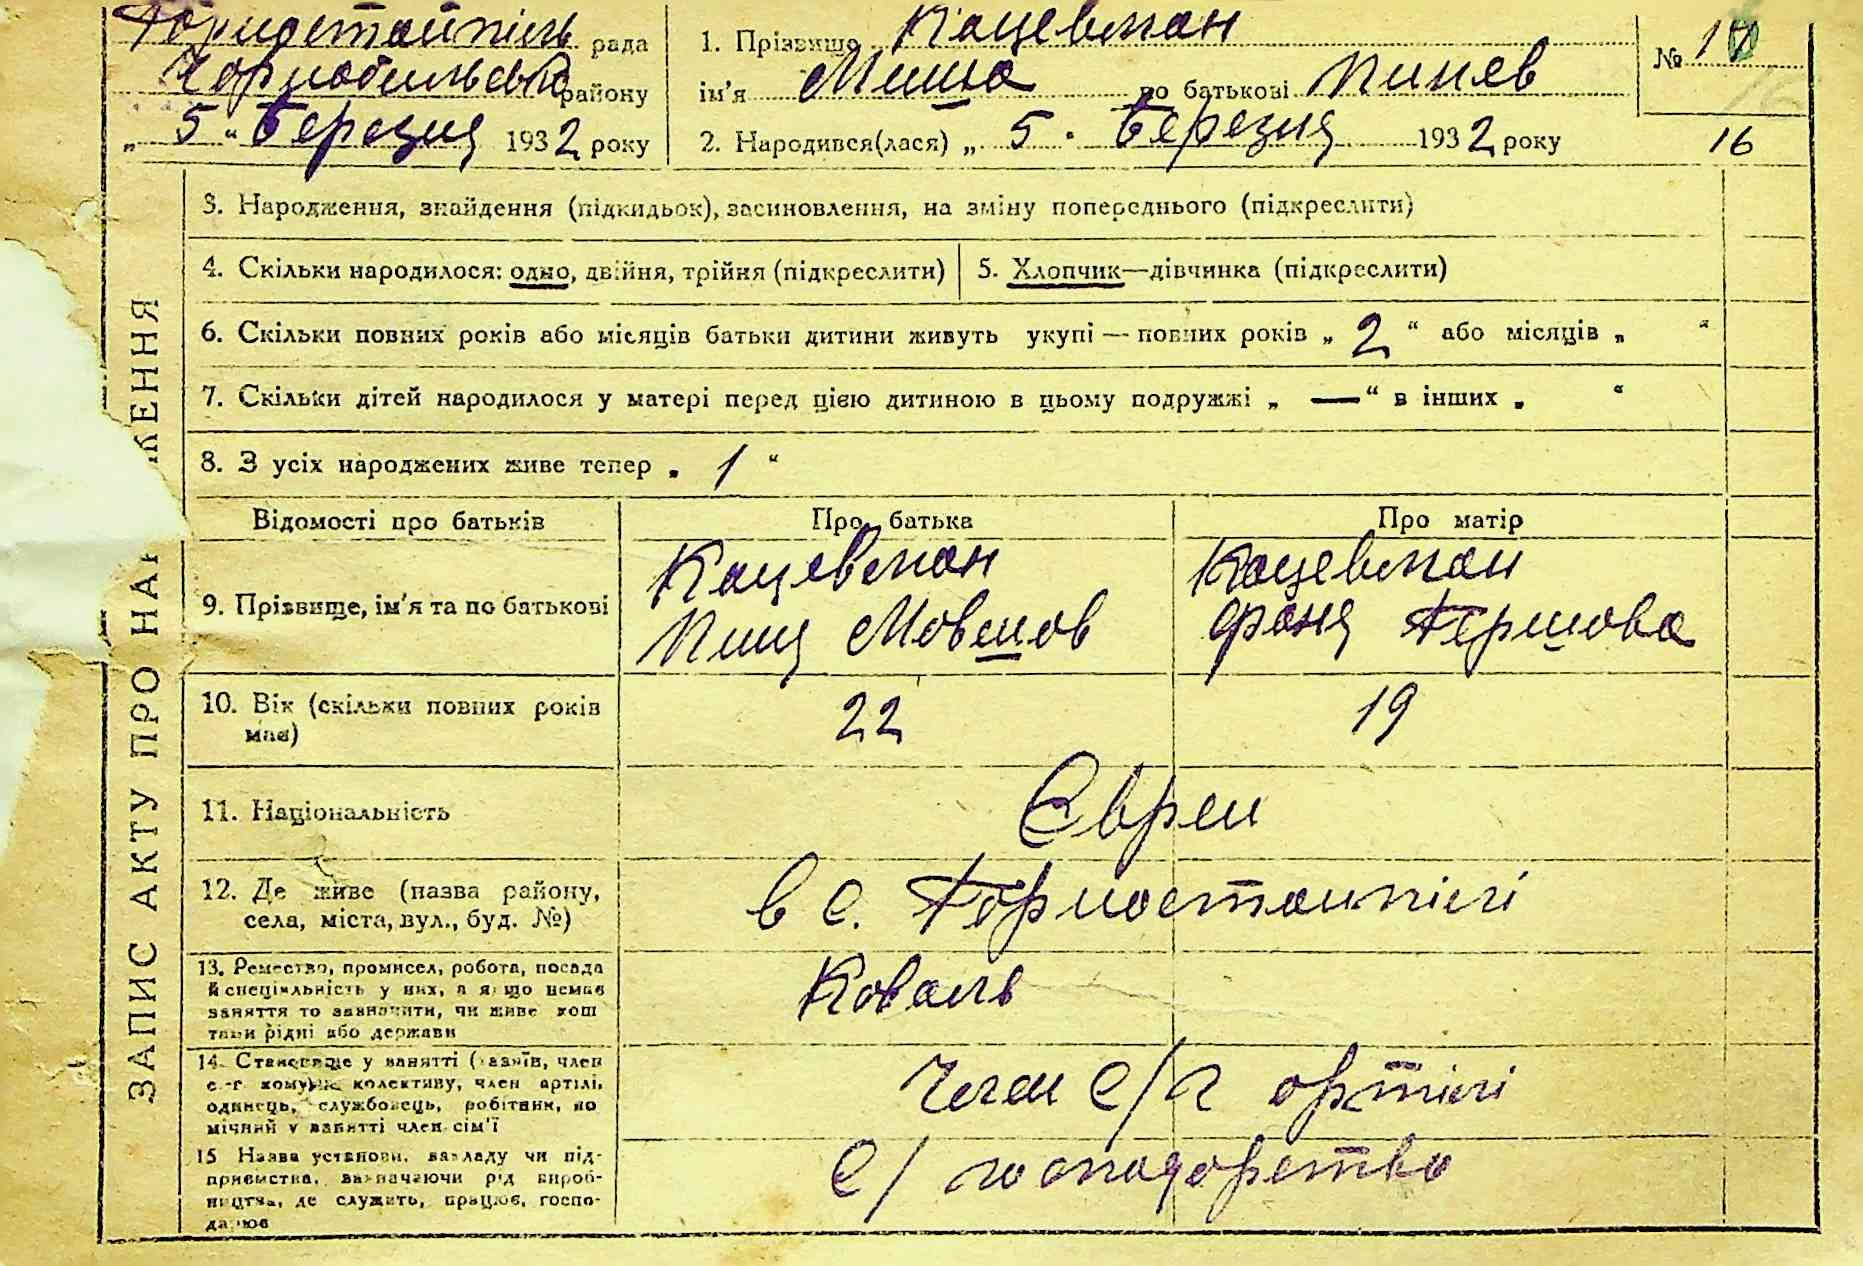 Горностайпіль рада
Чорнобильськ району
„ 5 “ Березня 1932 року
1. Прізвище Кацевман
ім'я Миша по батькові Пинев
2. Народився(лася) „ 5 . Березня 1932 року
№
16
ЗАПИС АКТУ ПРО НАР ЖЕННЯ
3. Народження, знайдення (підкидьок), засиновлення, на зміну попереднього (підкреслити)
4. Скільки народилося: одно, двійня, трійня (підкреслити)
5. Хлопчик—дівчинка (підкреслити)
6. Скільки повних років або місяців батьки дитини живуть укупі — повних років „ 2 “ або місяців „ “
7. Скільки дітей народилося у матері перед цією дитиною в цьому подружжі „ — “ в інших „ “
8. З усіх народжених живе тепер „ 1 “
Відомості про батьків
Про батька
Про матір
9. Прізвище, ім'я та по батькові
Кацевман
Пиня Мовшов
Кацевман
Фаня Гершова
10. Вік (скільки повних років
має)
22
19
11. Національність
Євреи
12. Де живе (назва району,
села, міста, вул., буд. №)
в с. Горностаипілі
13. Ремество, промисел, робота, посада
й спеціяльність у них, а якщо немає
заняття то зазначити, чи живе кош
тами рідні або держави
Коваль
14. Становище у занятті (хазяїв, член
с.-г комуни, колективу, член артілі,
одинець, службовець, робітник, по
мічний у занятті член сім'ї
Член с/г артілі
15 Назва установи, закладу чи під-
приємства, визначаючи рід вироб-
ництва, де служить, працює, госпо-
дарює
С/господарство